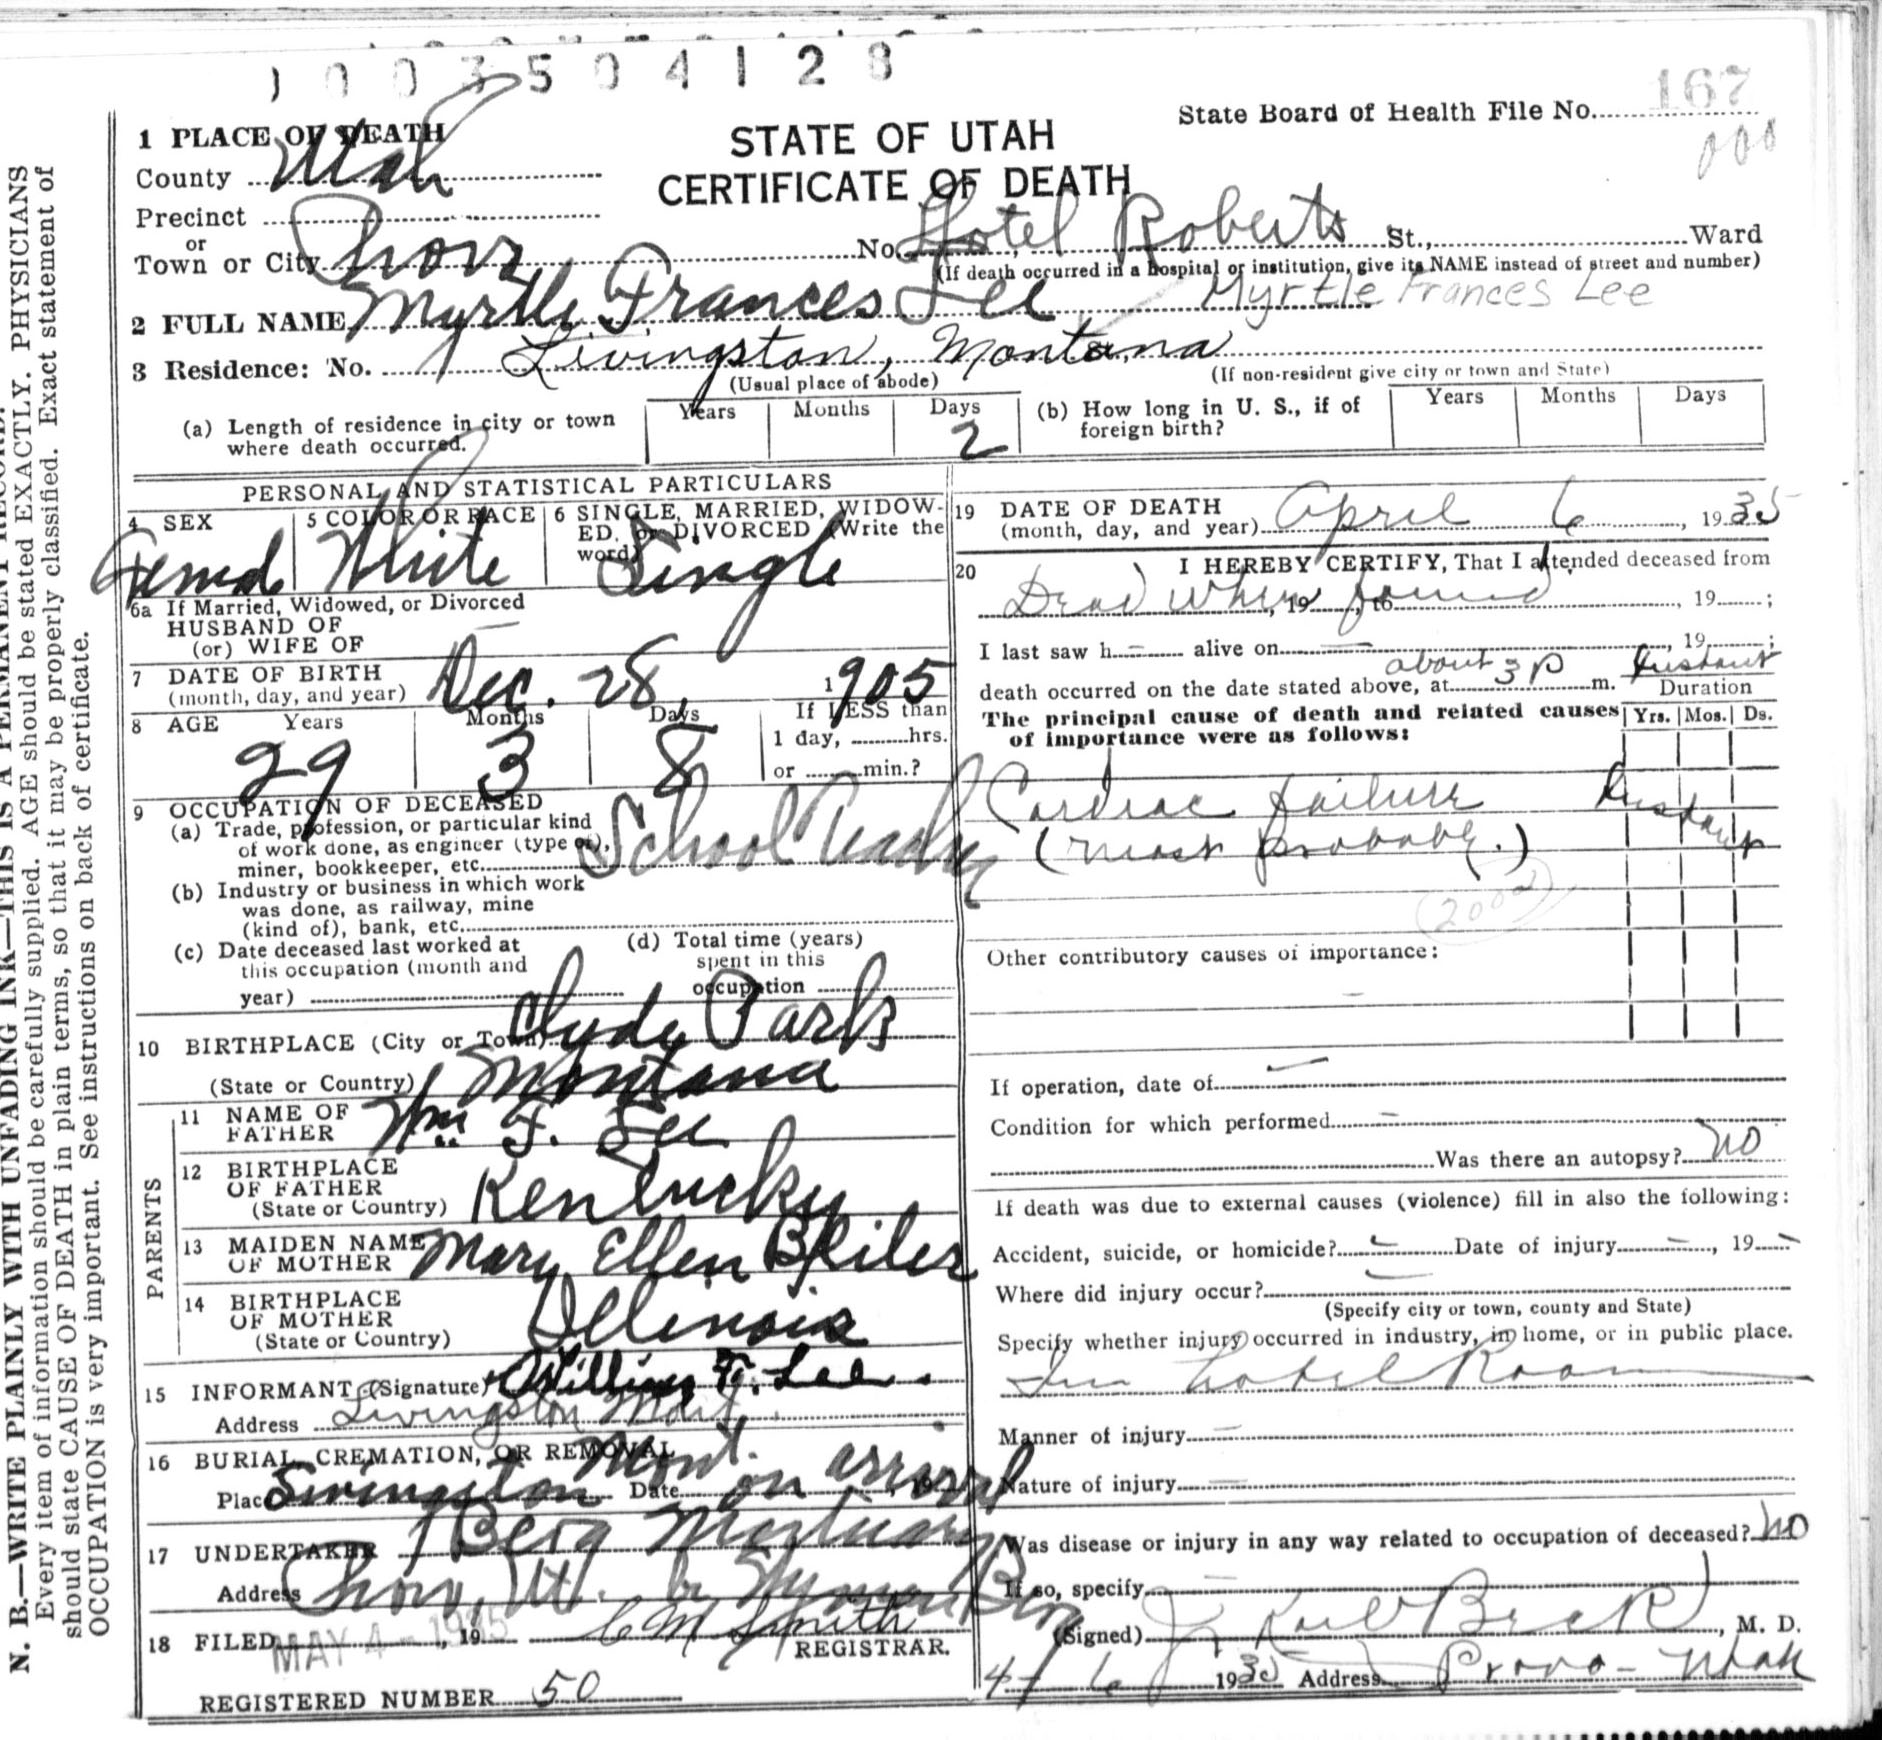 1003504128
State Board of Health File No. 167
000
STATE OF UTAH
CERTIFICATE OF DEATH
1 PLACE OF DEATH
County Utah
Precinct
or
Town or City Provo No. Hotel Roberts St., Ward
(If death occurred in a hospital or institution, give its NAME instead of street and number)
2 FULL NAME Myrtle Frances Lee Myrtle Frances Lee
3 Residence: No. Livingston, Montana
(Usual place of abode) (If non-resident give city or town and State)
(a) Length of residence in city or town where death occurred. Years Months Days 2
(b) How long in U. S., if of foreign birth? Years Months Days
PERSONAL AND STATISTICAL PARTICULARS
4 SEX Female
5 COLOR OR RACE White
6 SINGLE, MARRIED, WIDOW-
ED, or DIVORCED (Write the
word) Single
6a If Married, Widowed, or Divorced
HUSBAND OF
(or) WIFE OF —
7 DATE OF BIRTH
(month, day, and year) Dec. 28, 1905
8 AGE Years 29 Months 3 Days 8
If LESS than
1 day, hrs.
or min.?
9 OCCUPATION OF DECEASED
(a) Trade, profession, or particular kind
of work done, as engineer (type of),
miner, bookkeeper, etc. School Teacher
(b) Industry or business in which work
was done, as railway, mine
(kind of), bank, etc.
(c) Date deceased last worked at
this occupation (month and
year)
(d) Total time (years)
spent in this
occupation
10 BIRTHPLACE (City or Town) Clyde Park
(State or Country) Montana
PARENTS
11 NAME OF
FATHER Wm F. Lee
12 BIRTHPLACE
OF FATHER
(State or Country) Kentucky
13 MAIDEN NAME
OF MOTHER Mary Ellen
14 BIRTHPLACE
OF MOTHER
(State or Country) Illinois
15 INFORMANT (Signature) William F. Lee.
Address Livingston Mont.
16 BURIAL, CREMATION, OR REMOVAL
Place Livingston Mont. Date on arrival, 19
17 UNDERTAKER Berg Mortuary
Address Provo, Ut.
18 FILED MAY 4 - 1935, 19 C M Smith
REGISTRAR.
REGISTERED NUMBER 50
19 DATE OF DEATH
(month, day, and year) April 6, 1935
20 I HEREBY CERTIFY, That I attended deceased from
Dead when found, 19 , to , 19 ;
I last saw h— alive on — , 19 ;
death occurred on the date stated above, at about 3 p m. Instant
The principal cause of death and related causes
of importance were as follows:
Duration
Yrs. Mos. Ds.
Cardiac failure Instant
(most probably.)
Other contributory causes of importance:
—
If operation, date of —
Condition for which performed —
Was there an autopsy? no
If death was due to external causes (violence) fill in also the following:
Accident, suicide, or homicide? — Date of injury —, 19 —
Where did injury occur? —
(Specify city or town, county and State)
Specify whether injury occurred in industry, in home, or in public place.
In hotel Room
Manner of injury —
Nature of injury —
Was disease or injury in any way related to occupation of deceased? no
If so, specify —
(Signed) J. Karl Beck, M. D.
4/6 1935 Address Provo - Utah
N. B.—WRITE PLAINLY WITH UNFADING INK—THIS IS A PERMANENT RECORD.
Every item of information should be carefully supplied. AGE should be stated EXACTLY. PHYSICIANS
should state CAUSE OF DEATH in plain terms, so that it may be properly classified. Exact statement of
OCCUPATION is very important. See instructions on back of certificate.